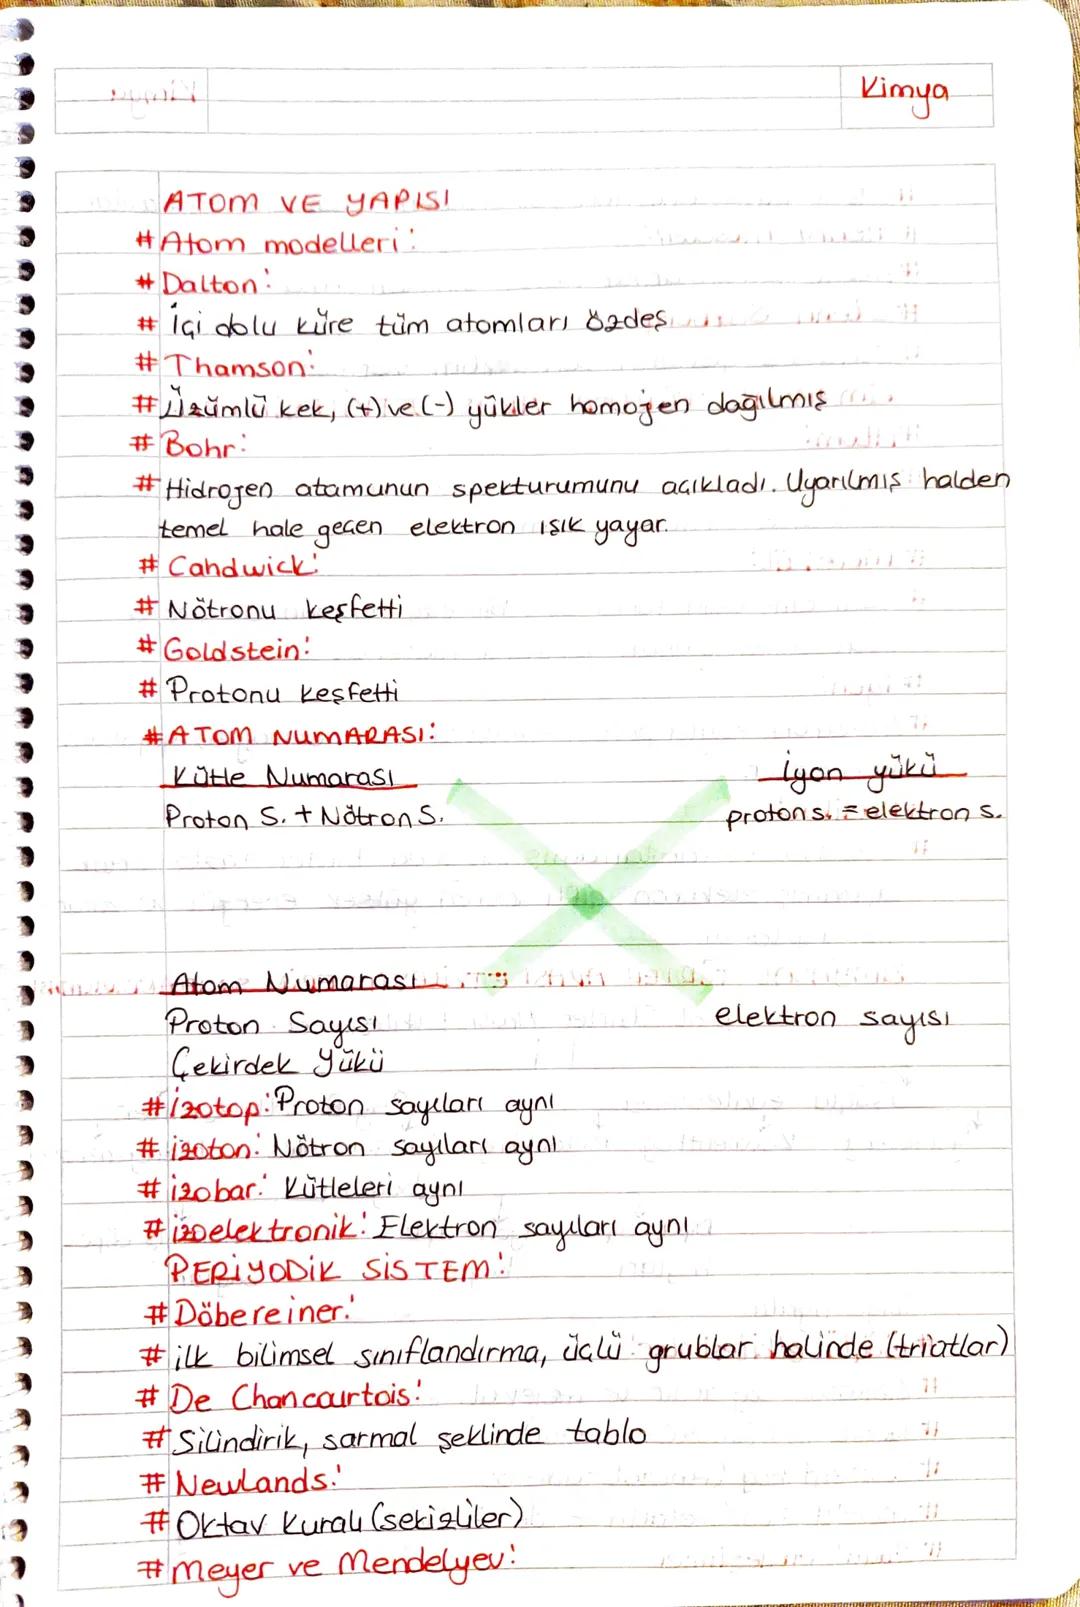 Kimya
ATOM VE YAPISI
#Atom modelleri:
#Dalton:
# İçi dolu küre tüm atomları özdeş
# Thamson:
# Üzümlü kek, (+) ve (-) yükler homojen dağılmış
# Bohr:
# Hidrojen atamunun spekturumunu açıkladı. Uyarılmış halden
temel hale geçen elektron ışık yayar.
# Cahdwick:
# Nötronu keşfetti
# Goldstein:
# Protonu keşfetti
#ATOM NUMARASI:
Kütle Numarası
İyon yükü
Proton S. + Nötron S.
proton s. = elektron s.
Atom Numarası
Proton Sayısı
elektron sayısı
Çekirdek Yükü
#izotop: Proton sayıları aynı
# izoton: Nötron sayıları aynı
# izobar: Kütleleri aynı
# izoelektronik: Elektron sayıları aynı
PERİYODİK SİSTEM:
#Döbereiner:
# ilk bilimsel sınıflandırma, üçlü grublar halinde (triatlar)
# De Chancourtois:
# Silindirik, sarmal şeklinde tablo
# Newlands:
# Oktav Kuralı (sekizliler)
# Meyer ve Mendelyev: